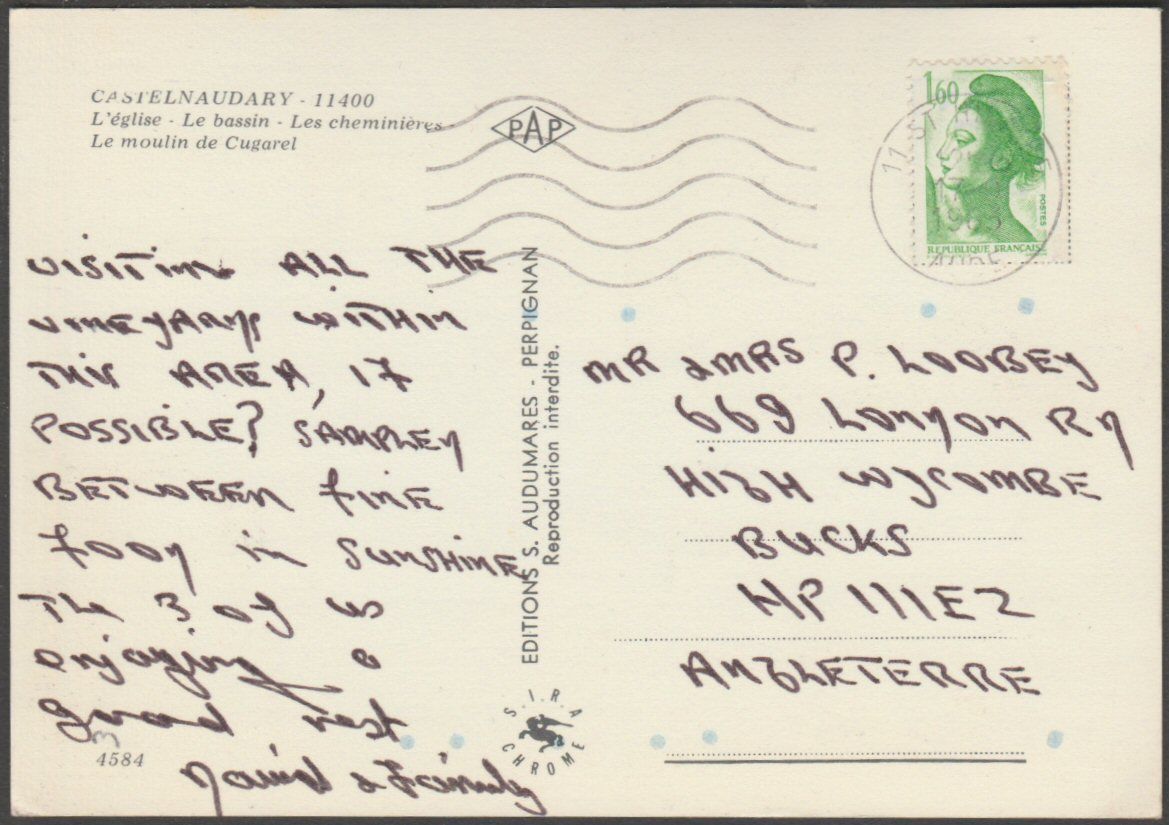 CASTELNAUDARY - 11400
L'église - Le bassin - Les cheminières
Le moulin de Cugarel
PAP
1,60
POSTES
REPUBLIQUE FRANÇAISE
11 ST
AUDE
VISITING ALL THE
VINEYARDS WITHIN
THIS AREA, IF
POSSIBLE? SAMPLED
BETWEEN FINE
FOOD in SUNSHINE
The 3 of us
enjoying a
good rest
David & Family
4584
EDITIONS S. AUDUMARES - PERPIGNAN
Reproduction interdite.
S.I.R.A
CHROME
MR & MRS P. LOOBEY
669 LONDON RD
HIGH WYCOMBE
BUCKS
HP 111EZ
ANGLETERRE